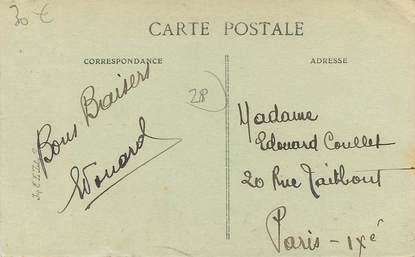 30 €
CARTE POSTALE
CORRESPONDANCE
ADRESSE
28
Bons Baisers
Edouard
Madame
Edouard Coullet
20 Rue Taitbout
Paris - IXè